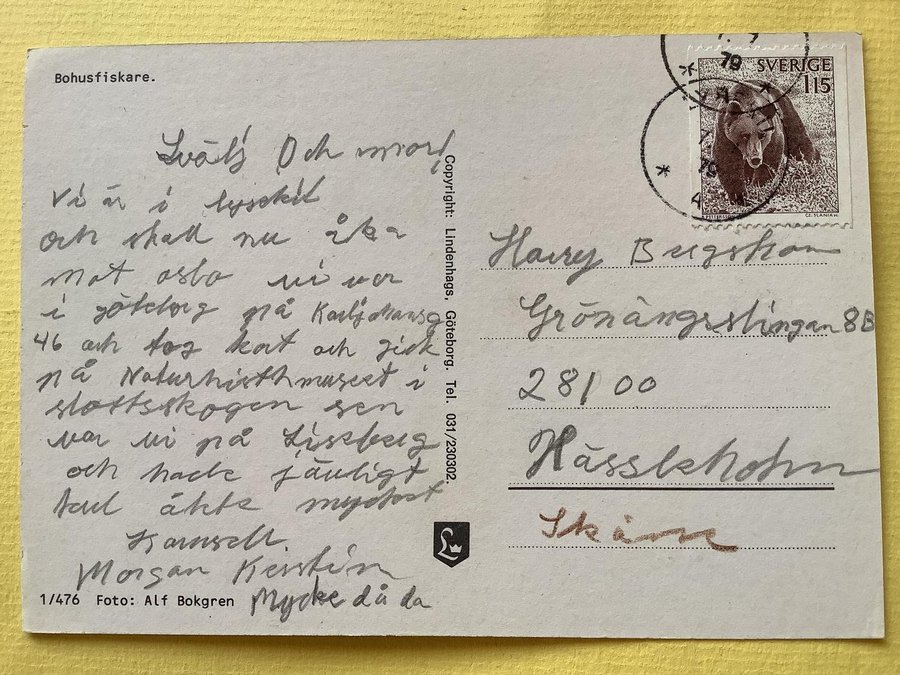 Bohusfiskare.
Och
Vi är i lysekil
och skall nu åka
mot oslo vi var
i göteborg på Karljohansg
46 och tog kort och gick
på Naturhisthmuseet i
slottsskogen sen
var vi på Liseberg
och hade jävligt
kul åkte mycket
Morgan Kerstin
Mycke då da
1/476 Foto: Alf Bokgren
Copyright: Lindenhags, Göteborg. Tel. 031/230302.
L
SVERIGE
115
CZ. SLANIA SC.
79
7
79
A
Harry Bergskan
Grönängsslingan 8B
281 00
Hässleholm
Skåne